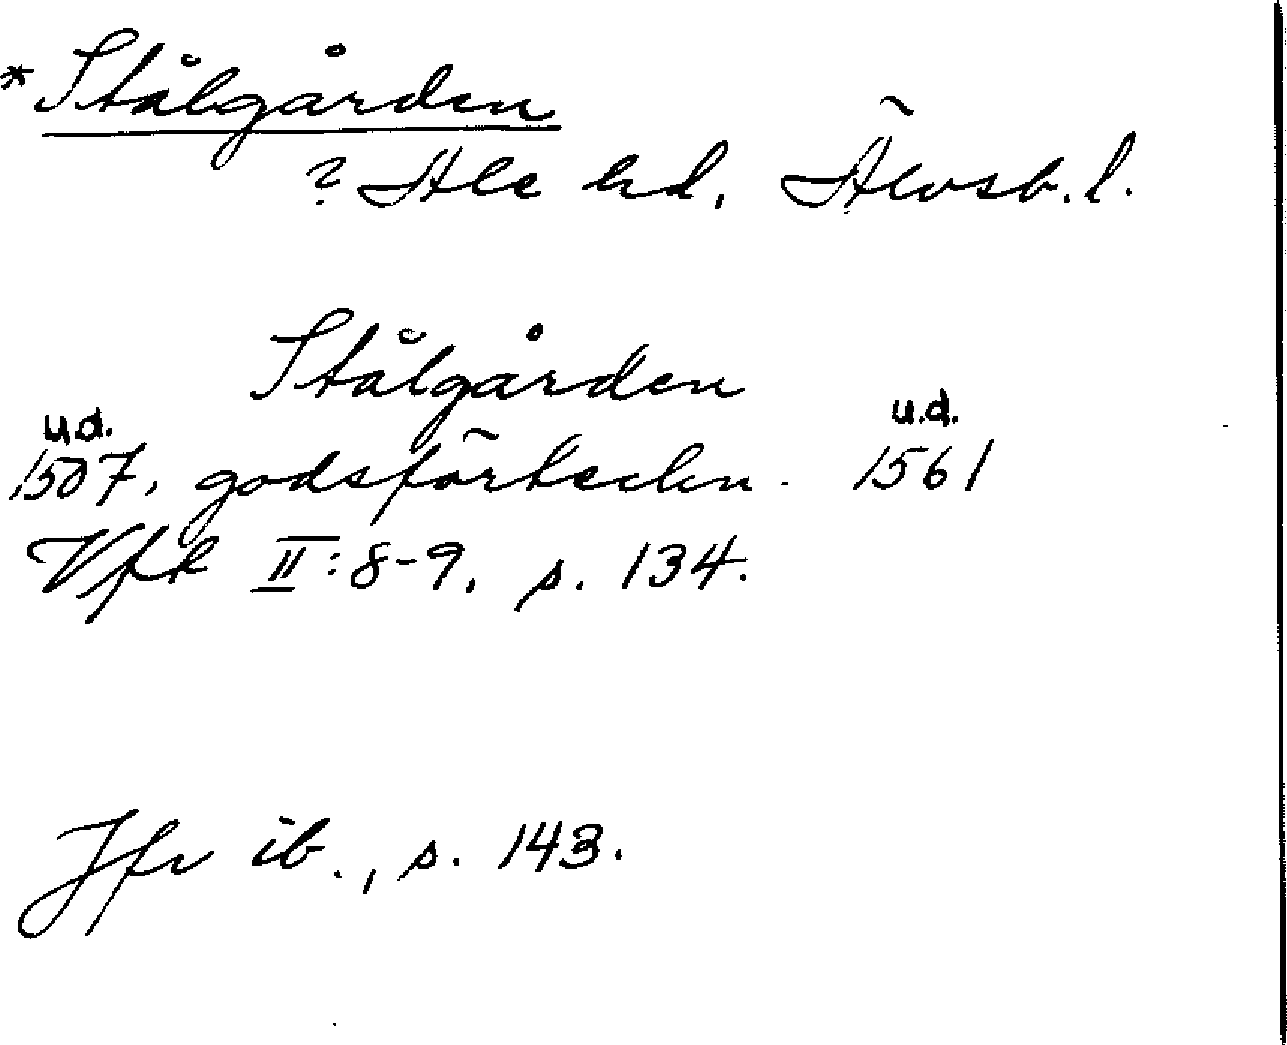 *Stålgården
? Ale hd, Älvsb. l.
Stålgården
u.d. u.d.
1507, godsförteckn. 1561
Vfk II:8-9, s. 134.
Jfr ib., s. 143.